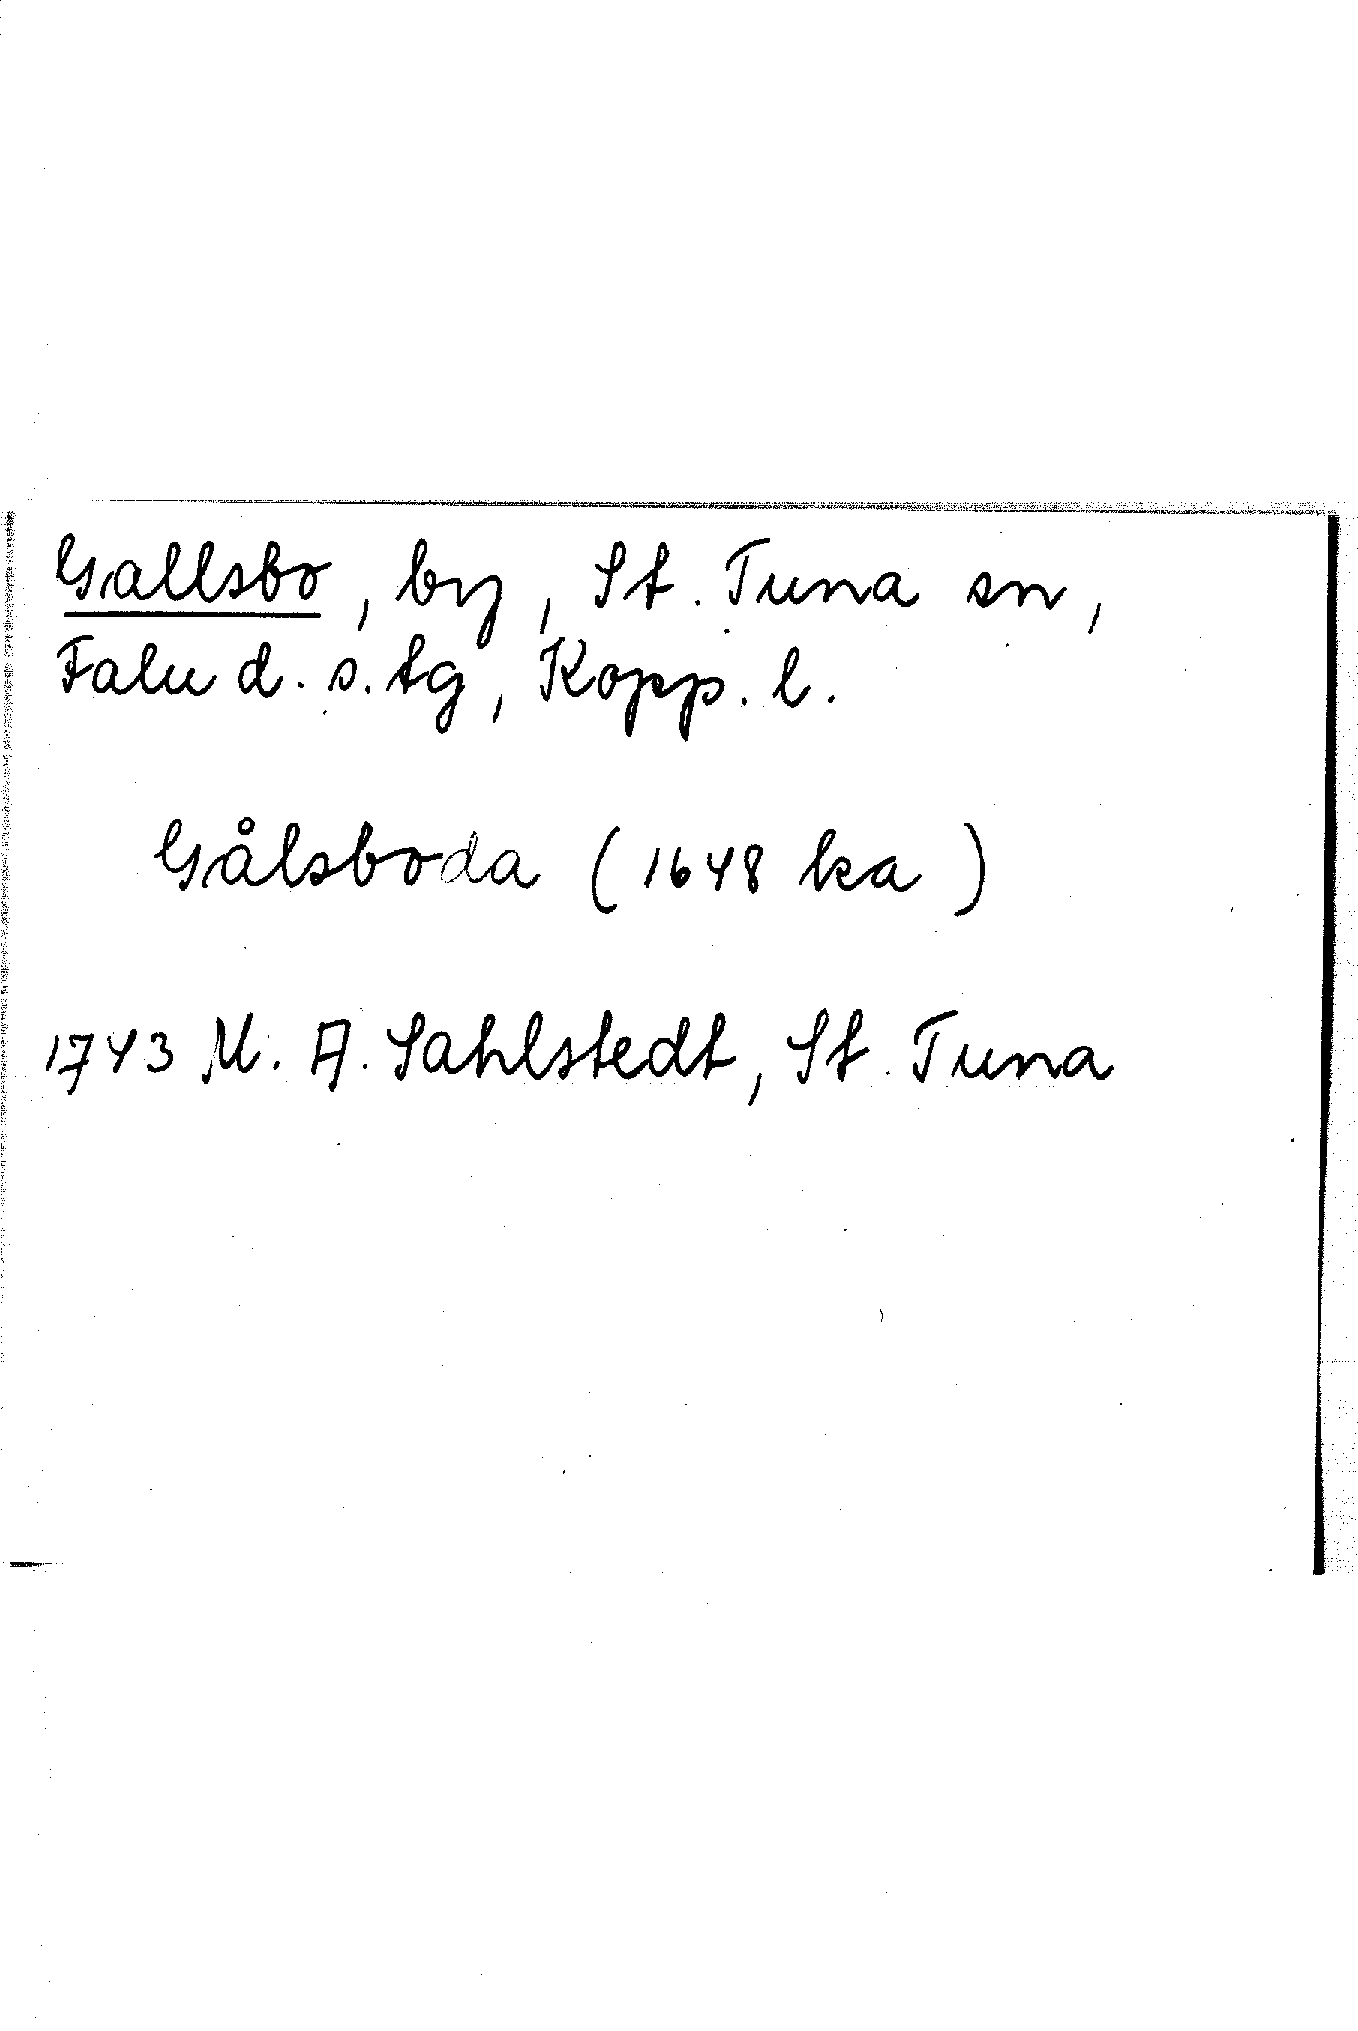 Gallsbo, by, St. Tuna sn,
Falu d. s. tg, Kopp. l.
Gålsboda (1648 ka)
1743 M. A. Sahlstedt, St. Tuna